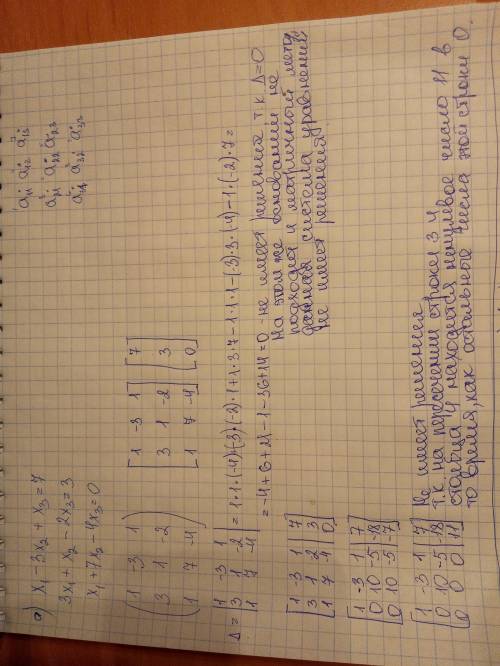 a) x₁ - 3x₂ + x₃ = 7
3x₁ + x₂ - 2x₃ = 3
x₁ + 7x₂ - 4x₃ = 0
a₁₁ a₁₂ a₁₃
a₂₁ a₂₂ a₂₃
a₃₁ a₃₂ a₃₃
(1 -3 1
3 1 -2
1 7 -4)
[1 -3 1
3 1 -2
1 7 -4]
[7
3
0]
Δ = |1 -3 1
3 1 -2
1 7 -4| = 1·1·(-4)+(-3)·(-2)·1+1·3·7-1·1·1-(-3)·3·(-4)-1·(-2)·7=
= -4+6+21-1-36+14=0 - не имеет решение т.к. Δ=0
На этом же основании не
подходит и матричный метод
данная система уравнений
не имеет решения.
[1 -3 1 | 7
3 1 -2 | 3
1 7 -4 | 0]
[1 -3 1 | 7
0 10 -5 | -18
0 10 -5 | -7]
[1 -3 1 | 7
0 10 -5 | -18
0 0 0 | 11]
Не имеет решения
т.к. на пересечении строки 3 и
столбца 4 находится ненулевое число 11 в
то время, как остальные числа этой строки 0.